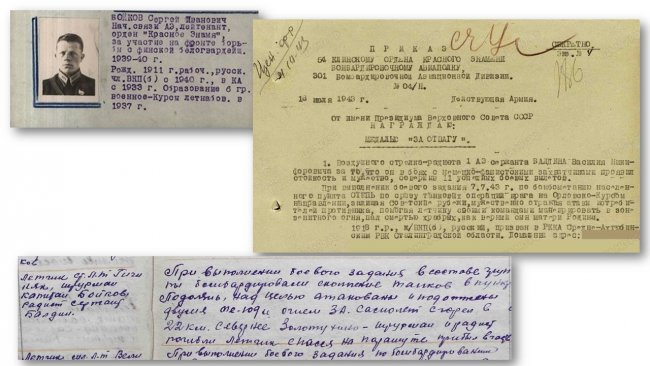 ВОЙКОВ Сергей Иванович
Нач.связи АЭ, лейтенант,
орден "Красное Знамя",
за участие на фронте борь-
бы с финской белогвардей.
1939-40 г.
Рожд. 1911 г. рабоч., русск.
чл.ВКП(б) с 1940 г., в КА
с 1933 г. Образование 6 гр.
военное-Курсы летнабов. в
1937 г.
СЕКРЕТНО
П Р И К А З
54 КЛИНСКОМУ ОРДЕНА КРАСНОГО ЗНАМЕНИ
БОМБАРДИРОВОЧНОМУ АВИАПОЛКУ
301 Бомбардировочной Авиационной Дивизии.
№ 04/Н.
18 июля 1943 г. Действующая Армия.
От имени Президиума Верховного Совета СССР
Н А Г Р А Ж Д А Ю:
МЕДАЛЬЮ "ЗА ОТВАГУ".
1. Воздушного стрелка-радиста 1 АЭ сержанта БАЛДИНА Василия Ники-
форовича за то, что он в боях с немецко-фашистскими захватчиками проявил
стойкость и мужество, совершив 11 успешных боевых вылетов.
При выполнении боевого задания 7.7.43 г. по бомбометанию населен-
ного пункта
направлении, защищая Советские рубежи, мужественно отражая атаки истреби-
телей противника, помогая летчику своими командами маневрировать в зоне
зенитного огня, пал смертью храбрых, как верный сын матери Родины.
1918 г.р., ВКП(б), русский, призван в РККА Средне-Ахтубин-
ским РВК Сталинградской области. Домашний адрес:
Летчик ст. л-т
штурман
капитан Бойков,
радист сержант
Балдин.
При выполнении боевого задания в составе груп-
пы бомбардировали скопление танков в пункте
Подолянь, над целью атакованы и подожжены
двумя Ме-109, огнем ЗА. Самолет сгорел в
22 км. Севернее Золотухино - штурман и радист
погибли летчик спасся на парашюте прибыл в часть
Летчик мл. л-т Вели
При выполнении боевого задания по бомбардированию